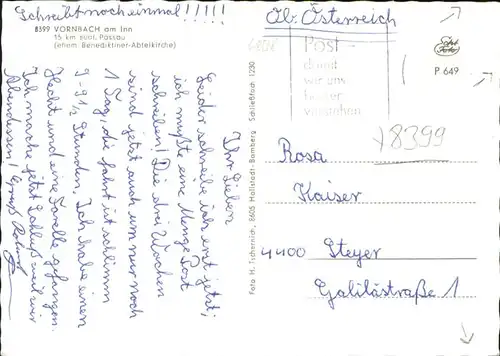 Schreibt noch einmal!!!!!
8399 VORNBACH am Inn
15 km südl. Passau
(ehem. Benediktiner-Abteikirche)
Ihr Lieben
Leider schreibe ich erst jetzt;
ich mußte eine Menge Post
schreiben! Die drei Wochen
sind jetzt auch um nur noch
1 Tag, die fahrt ist schlimm
9-9 1/2 Stunden. Ich habe einen
Hecht und eine Forelle gefangen.
Ich mache jetzt Schluß weil wir
Abendessen! Gruß
Foto H. Tschernich, 8605 Hallstadt-Bamberg · Schließfach 1230
Ob. Österreich
Post -
damit
wir uns
besser
verstehen
P 649
8399
Rosa
Kaiser
4400 Steyer
Galilästraße 1